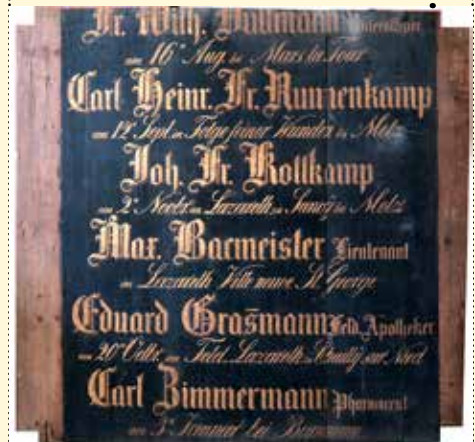 Fr. Wilh.
am 16t Aug. bei Mars la Tour
Carl Heinr. Fr. Nunnenkamp
am 12t Sept. in Folge seiner Wunden in Metz
Joh. Fr. Kollkamp
am 2t Novbr. im Lazareth zu bei Metz
Max. Bacmeister Lieutenant
im Lazareth Ville neuve, St. George,
Eduard Grasmann Feld, Apotheker
am 20t Octbr. im Feld Lazareth sur Nied
Carl Zimmermann Pharmaceut
am 5t Januar bei